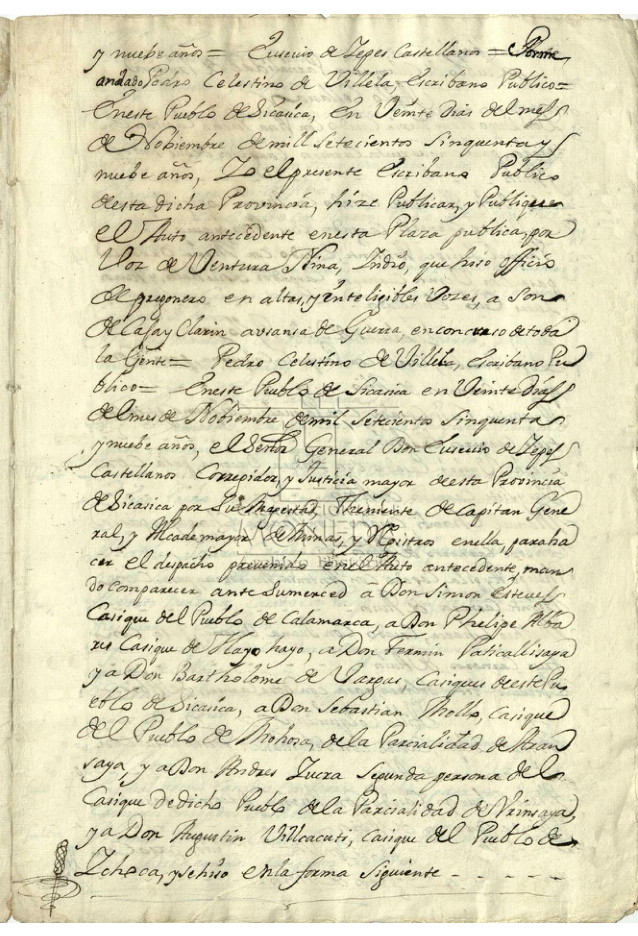 y nuebe años = Eusevio de Zepes Castellanos = Por m̃
andado Pedro Celestino de Villela, Escribano Publico =
Eneste Pueblo de Sicasica, En Veinte Dias del mes
de Nobiembre de mill setecientos sinquenta y
nuebe años, Yo el presente Escribano Publico
desta dicha Provincia, hize Publicar, y Publique
el Auto antecedente enesta Plaza publica, por
Voz de Ventura Nina, Indio, que hiso officio
de pregonero en altas, y inteligibles Vozes, a son
de Caja y Clarin a usansa de Guerra, en concurso de toda
la Gente = Pedro Celestino de Villela, Escribano Pu
blico = Eneste Pueblo de Sicasica en Veinte Dias
del mes de Nobiembre de mil setecientos sinquenta
y nuebe años, el Señor General Don Eusevio de Zepes
Castellanos Corregidor, y Justicia mayor de esta Provincia
de Sicasica por Su Magestad, Theniente de Capitan Gene
ral, y Alcade mayor de Minas, y Registros enella, para ha
cer el despacho prevenido en el Auto antecedente, man
do comparecer ante Sumerced â Don Simon Esteves
Casique del Pueblo de Calamarca, a Don Phelipe Alba
res Casique de Hayohayo, a Don Fermin Paticallisaya
y a Don Bartholome de Vargas, Casiques de este Pu
eblo de Sicasica, a Don Sebastian Mollo, Casique
del Pueblo de Mohosa, de la Parcialidad de Aran
saya, y a Don Andres Zucra Segunda persona del
Casique de dicho Pueblo de la Parcialidad de Vrinsaya,
y a Don Augustin Villcacuti, Casique del Pueblo de
Ychoca, y se hiso en la forma Siguiente - - - - - -